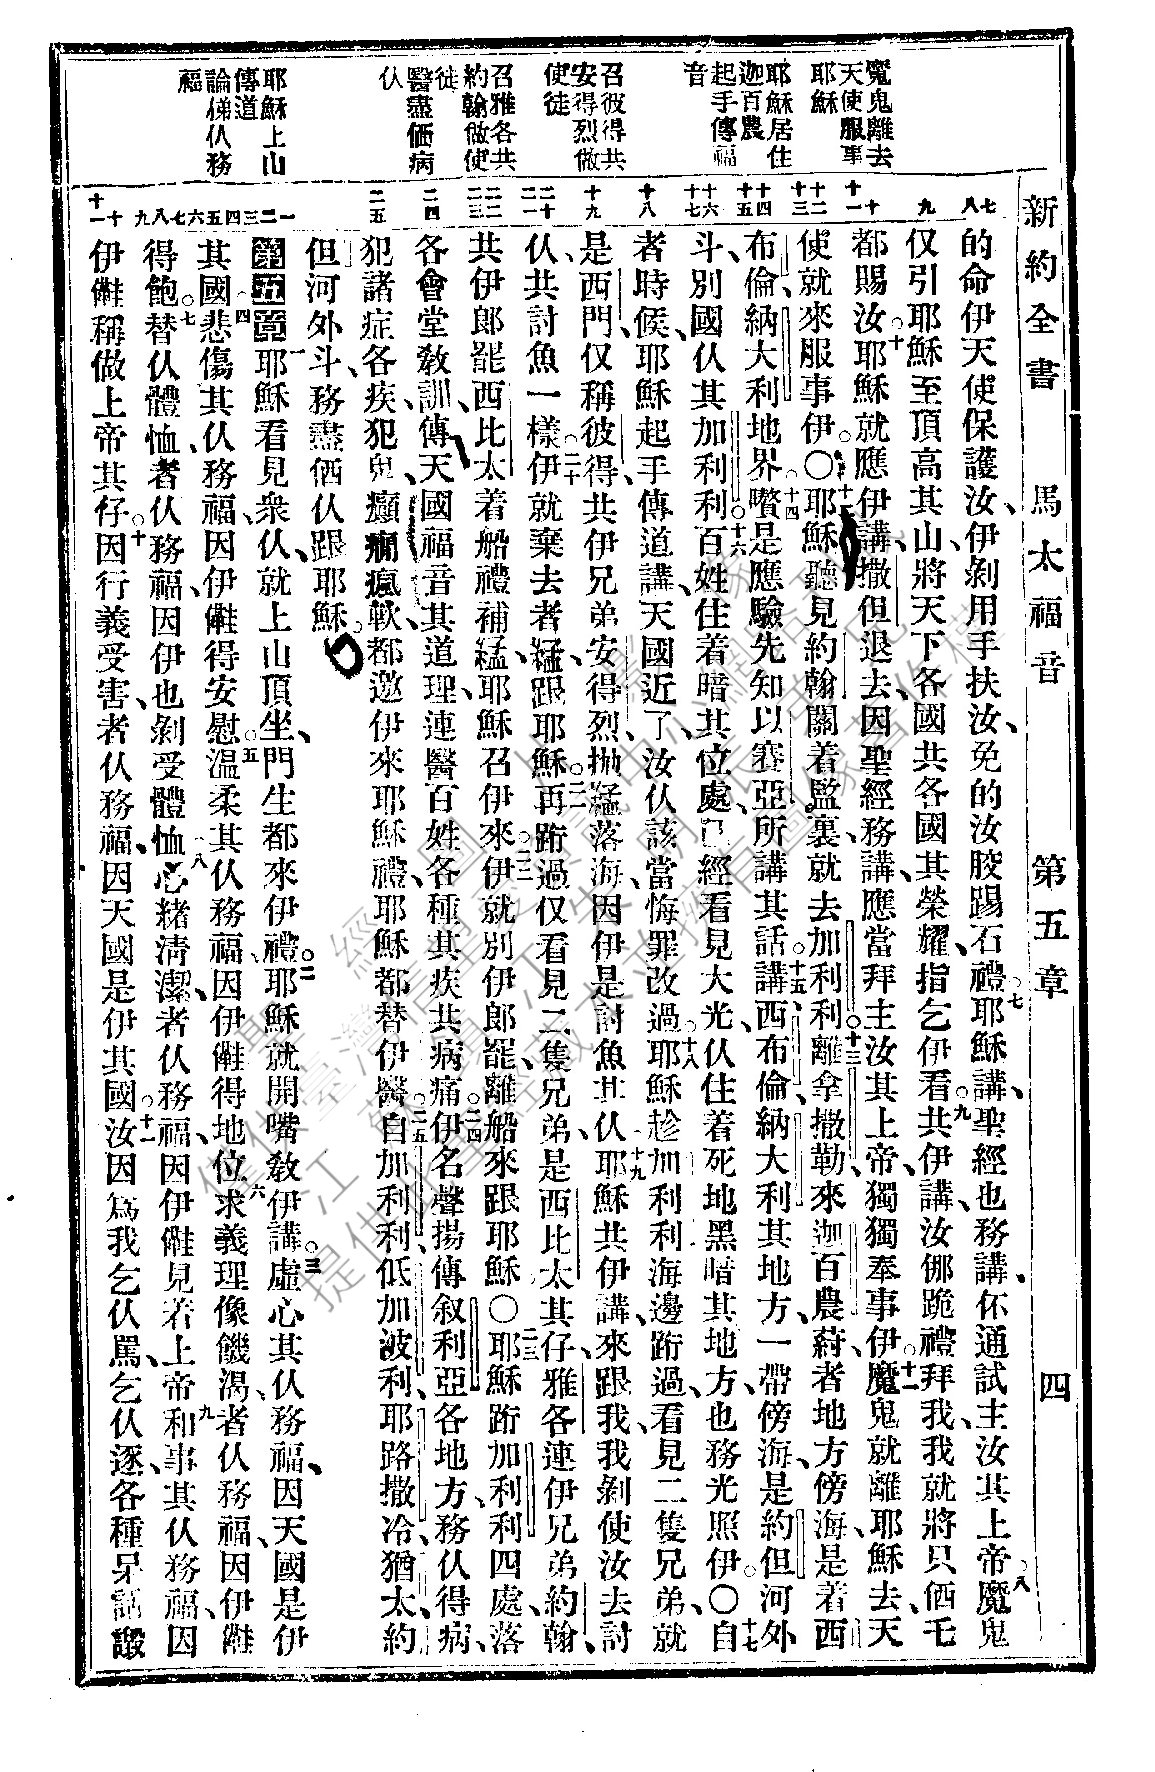 新約全書 馬太福音 第五章 四
魔鬼離去
天使服事
耶穌
耶穌居住
迦百農
起手傳福
音
召彼得共
安得烈做
使徒
召雅各共
約翰做使
徒
醫盡価病
仈
耶穌上山
傳道
論俤仈務
福
七八
九
十十一
十二十三
十四十五
十六十七
十八
十九
二十二一
二二二三
二四
二五
一二三四五六七八九
十十一
的命伊天使保護汝、伊剝用手扶汝、免的汝骹踢石禮。七耶穌講、聖經也務講、伓通試主汝其上帝。八魔鬼
仅引耶穌至頂高其山、將天下各國共各國其榮耀、指乞伊看。九共伊講、汝㑚跪禮拜我、我就將只価乇
都賜汝。十耶穌就應伊講、撒但退去、因聖經務講、應當拜主汝其上帝、獨獨奉事伊。十一魔鬼就離耶穌去、天
使就來服事伊。〇十二耶穌聽見約翰關着監裏、就去加利利。十三離拿撒勒、來迦百農、蒔者地方傍海、是着西
布倫、納大利地界。十四嚽是應驗先知以賽亞所講其話。十五講、西布倫納大利其地方、一帶傍海、是約但河外、
斗、別國仈其加利利。十六百姓住着暗其位處、已經看見大光、仈住着死地黑暗其地方、也務光照伊。〇十七自
者時候、耶穌起手傳道講、天國近了、汝仈該當悔罪改過。十八耶穌趁加利利海邊跲過、看見二隻兄弟、就
是西門仅稱彼得、共伊兄弟安得烈、抛𦀌落海、因伊是討魚其仈。十九耶穌共伊講、來跟我、我剝使汝去討
仈、共討魚一樣。二十伊就棄去者𦀌、跟耶穌。二一再跲過、仅看見二隻兄弟、是西比太其仔雅各、連伊兄弟約翰、
共伊郎罷西比太、着船禮補𦀌、耶穌召伊來。二二伊就別伊郎罷、離船來跟耶穌。〇二三耶穌跲加利利四處、落
各會堂教訓、傳天國福音其道理、連醫百姓各種其疾共病痛。二四伊名聲揚傳敘利亞各地方、務仈得病、
犯諸症各疾、犯鬼、癲癇、瘋軟、都邀伊來耶穌禮、耶穌都替伊醫。二五自加利利、低加波利、耶路撒冷、猶太、約
但河外斗、務盡価仈跟耶穌。
第五章 一耶穌看見衆仈、就上山頂坐、門生都來伊禮。二耶穌就開嘴教伊講。三虛心其仈務福、因天國是伊
其國。四悲傷其仈務福、因伊𠆧得安慰。五溫柔其仈務福、因伊𠆧得地位。六求義理像饑渴者仈務福、因伊𠆧
得飽。七替仈體恤者仈務福、因伊也剝受體恤。八心緒清潔者仈務福、因伊𠆧見着上帝。九和事其仈務福、因
伊𠆧稱做上帝其仔。十因行義受害者仈務福、因天國是伊其國。十一汝因爲我乞仈罵、乞仈逐、各種呆話譭